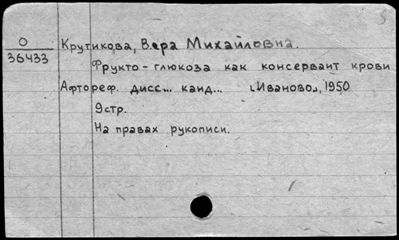 О
36433
Крутикова, Вера Михайловна.
Фрукто-глюкоза как консервант крови
Афтореф. дисс... канд... [Иваново], 1950
9стр.
На правах рукописи.